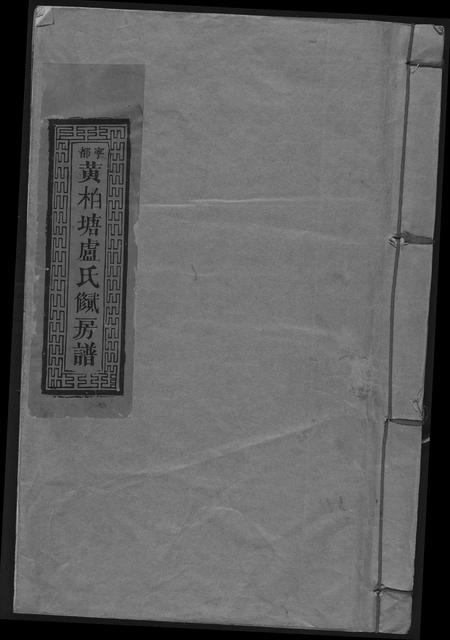 寧都
黃柏塘盧氏獻房譜